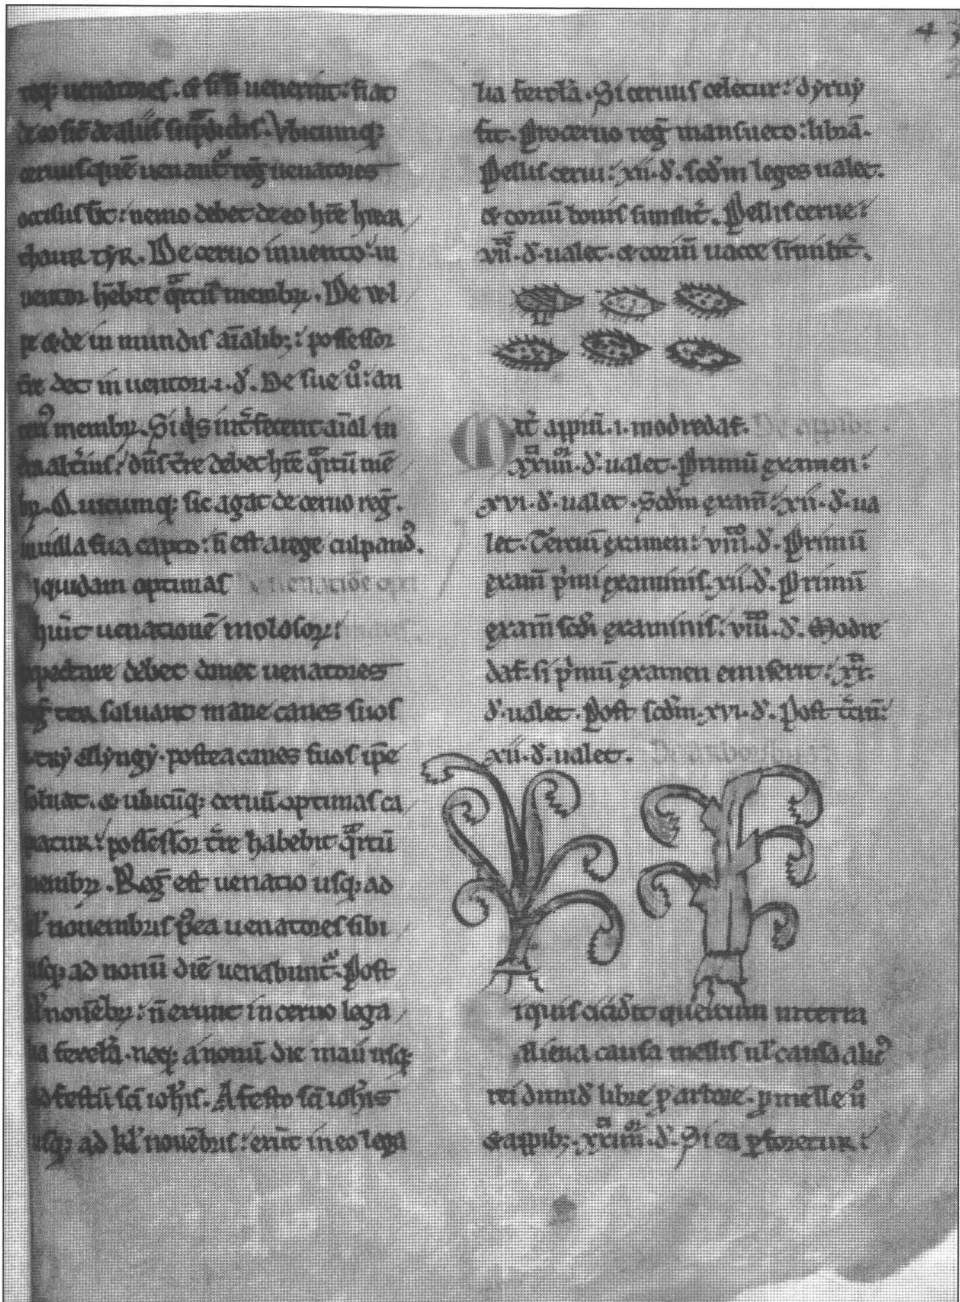 uenatores. & si ñ uenerint: fiat
de eo sic̄ de aliis sup̄dictis. Vbicumq;
ceruus quē uenant᷑ reḡ uenatores
occisus sit: nemo debet de eo hr̄e hyar
thour tyr. De ceruo inuento: in
uentor hēbit q̄rtū membꝝ. De wl
pe & de in mundis aīalib;: possessor
tr̄e det in uentori .i. đ. De sue ů: an
membꝝ. Si q̇s int̄fecerit aīal in
dn̄s tr̄e debet hr̄e q̄rtū mē
bꝝ. Quicumq; sic agat de ceruo reḡ.
in uilla sua capto: ñ est a rege culpand᷒.
quidam optimas De uenatiōe opti
huīt uenationē molosoꝝ:
expectare debet donec uenatores
reḡ ter soluant mane canes suos
ellyngẏ. postea canes suos ip̄e
soluat. & ubicūq; ceruū optimas ca
piatur: possessor tr̄e habebit q̄rtū
membꝝ. Reḡ est uenatio usq; ad
kł nouembris p̊ea uenatores sibi
usq; ad nonū diē uenabunt᷑. Post
kł nouēbꝝ: ñ erunt in ceruo lega
lia ferclā. neq; a nono die maii usq;
ad festū sc̄i ioh̄is. A festo sc̄i ioh̄is
usq; ad kł nouēbris: erūt in eo lega
4
lia ferclā. Si ceruus celetur: dyruy
fit. Pro ceruo reḡ mansueto: librā.
Pellis cerui: xii. đ. scđm leges ualet.
& coriū bouis similit᷑. Pellis cerue:
vii. đ. ualet. & coriū uacce similit᷑.
Mat̄ appiū .i. modredaf. De appibus.
xxiiii. đ. ualet. Primū examen:
xvi. đ. ualet. Scđm exam̄: xii. đ. ua
let. Tercium examen: viii. đ. Primū
exam̄ p̊mi examinis. xii. đ. Primū
exam̄ scđi examinis: viii. đ. Modre
daf. si p̊mū examen emiserit: xx.
đ. ualet. Post scđm. xvi. đ. Post tc̄iū:
xii. đ. ualet. De arboribus
Siquis cicid̄it quercum in terra
aliena causa mellis ul̄ causa alic᷒
rei dimiđ libre ꝑ arbore. ꝑ melle ů
& appib; xxiiii. đ. Si ea ꝑforetur: